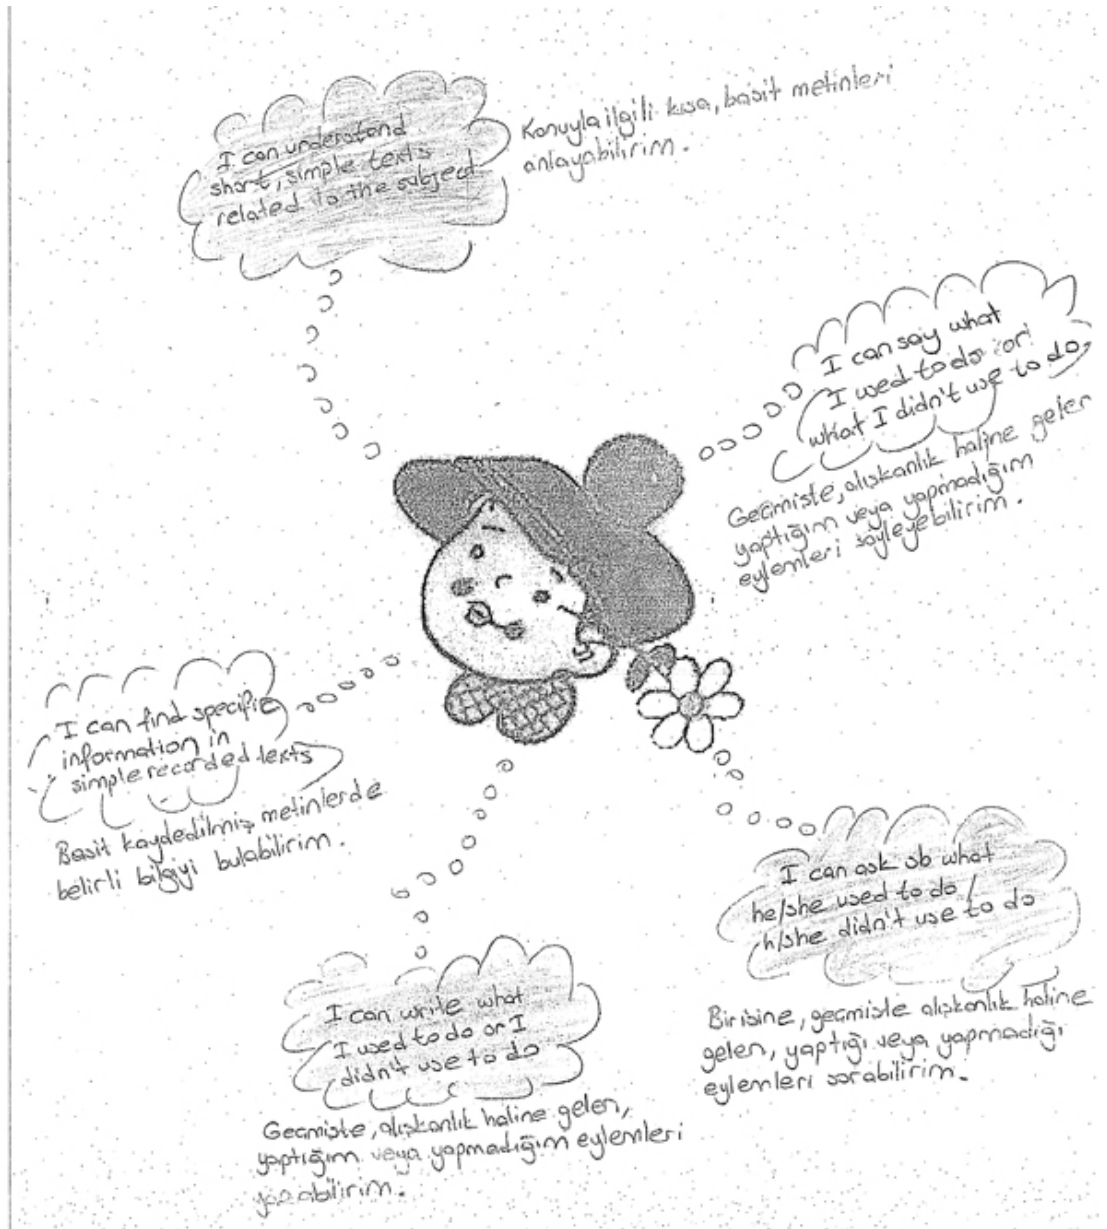 I can understand
short, simple texts
related to the subject
Konuyla ilgili kısa, basit metinleri
anlayabilirim.
I can say what
I used to do (or)
what I didn't use to do
Geçmişte, alışkanlık haline gelen
yaptığım veya yapmadığım
eylemleri söyleyebilirim.
I can find specific
information in
simple recorded texts
Basit kaydedilmiş metinlerde
belirli bilgiyi bulabilirim.
I can ask sb what
he/she used to do /
h/she didn't use to do
Birisine, geçmişte alışkanlık haline
gelen, yaptığı veya yapmadığı
eylemleri sorabilirim.
I can write what
I used to do or I
didn't use to do
Geçmişte, alışkanlık haline gelen,
yaptığım veya yapmadığım eylemleri
yazabilirim.